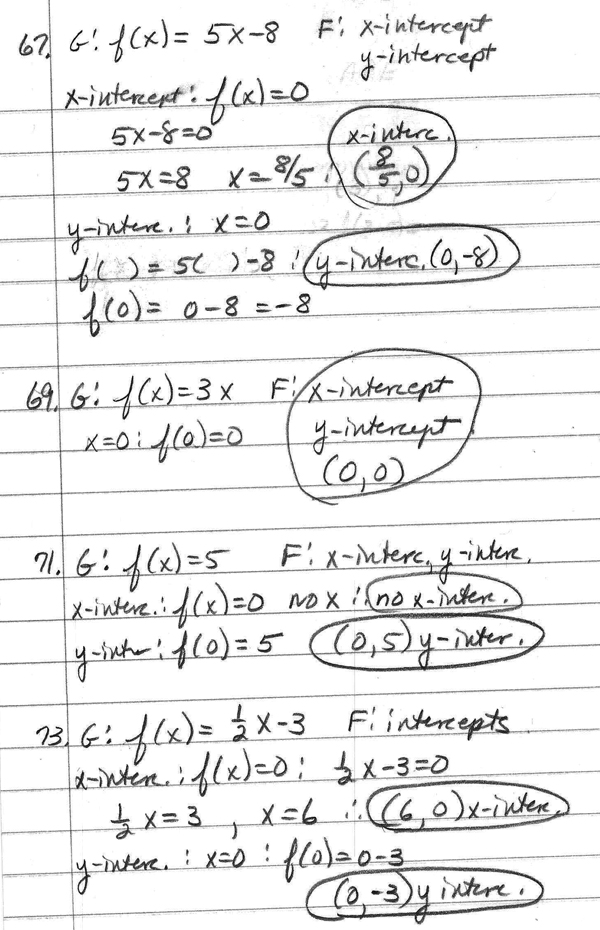 67. G: f(x) = 5x-8 F: x-intercept
y-intercept
x-intercept: f(x)=0
5x-8=0 x-interc.
5x=8 x=8/5 ∴ (8/5, 0)
y-interc.: x=0
f( ) = 5( ) -8 ∴ y-interc. (0,-8)
f(0) = 0-8 = -8
69. G: f(x)=3x F: x-intercept
x=0: f(0)=0 y-intercept
(0,0)
71. G: f(x)=5 F: x-interc, y-interc.
x-interc.: f(x)=0 no x ∴ no x-interc.
y-intr: f(0)=5 (0,5) y-inter.
73. G: f(x) = 1/2 x-3 F: intercepts
x-interc.: f(x)=0: 1/2 x-3=0
1/2 x=3, x=6 ∴ (6,0) x-interc.
y-interc.: x=0: f(0)=0-3
(0,-3) y interc.